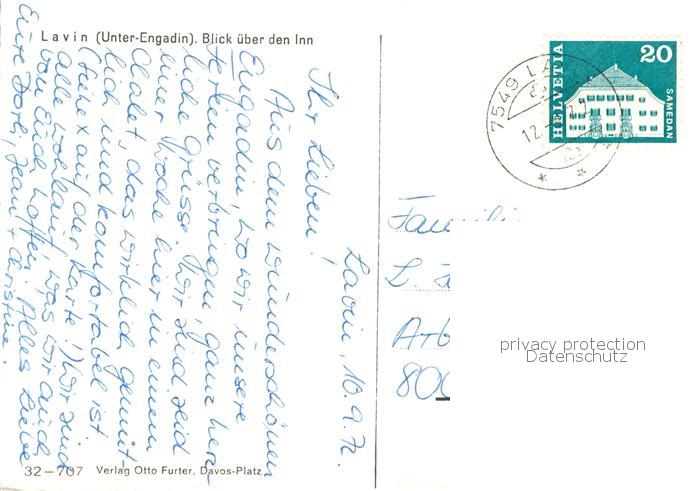 Lavin (Unter-Engadin). Blick über den Inn
Lavin, 10.9.72.
Ihr Lieben!
Aus dem wunderschönen
Engadin, wo wir unsere
Ferien verbringen, ganz herz-
liche Grüsse. Wir sind seit
einer Woche hier in einem
Chalet, das wirklich gemüt-
lich und komfortabel ist
(siehe x auf der Karte!) Wir sind
alle wohlauf, was wir auch
von Euch hoffen. Alles Liebe
Eure Doris, Jean + Christine.
32-707 Verlag Otto Furter, Davos-Platz
HELVETIA
20
SAMEDAN
7549 LA
12.
Fam
L.
Arb
800
privacy protection
Datenschutz